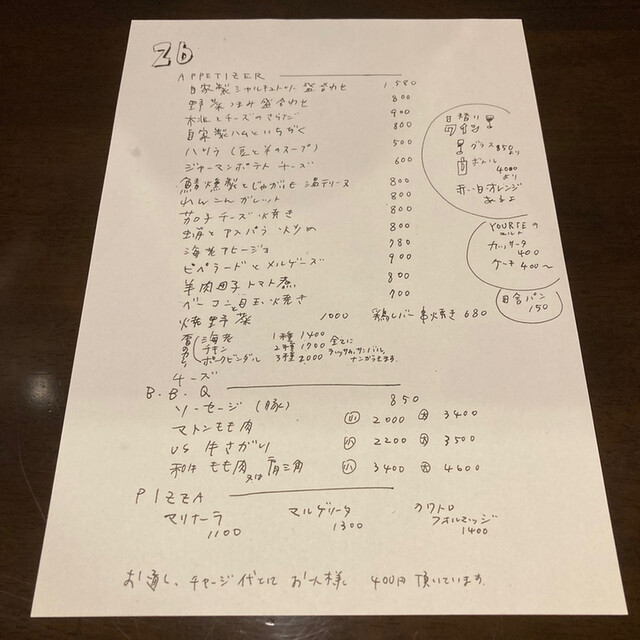 26
APPETIZER
自家製シャルキュトリー盛合わせ 1,580
野菜つまみ盛合わせ 800
桃とチーズのさらだ 900
自家製ハムといちぢく 800
ハリラ(豆と羊のスープ) 500
ジャーマンポテト チーズ 600
鯖燻製とじゃがいも 温テリーヌ 800
れんこんガレット 800
茄子チーズ焼き 800
蛸とアスパラ 炒め 800
海老アヒージョ 780
ピペラードとメルゲーズ 900
羊肉団子トマト煮 800
ベーコンと目玉焼き 700
焼野菜 1000 鶏レバー串焼き 680
海老 1種 1400 全てに
チキン 2種 1700 ライッサム,サンバル,
ポークビンダル 3種 2000 ナンがつきます。
チーズ
B.B.Q
ソーセージ(豚) 850
マトンもも肉 小 2000 大 3400
US 牛さがり 小 2200 大 3500
和牛 もも肉 又は 肩三角 小 3400 大 4600
PIZZA
マリナーラ 1100
マルゲリータ 1300
クワトロ
フォルマッジ 1400
お通し、チャージ代として お一人様 400円 頂いています。
日替り
グラス 850
より
ボトル
4000
より
赤、白 オレンジ
あるよ
カッサータ
400
ケーキ 400〜
田舎パン
150